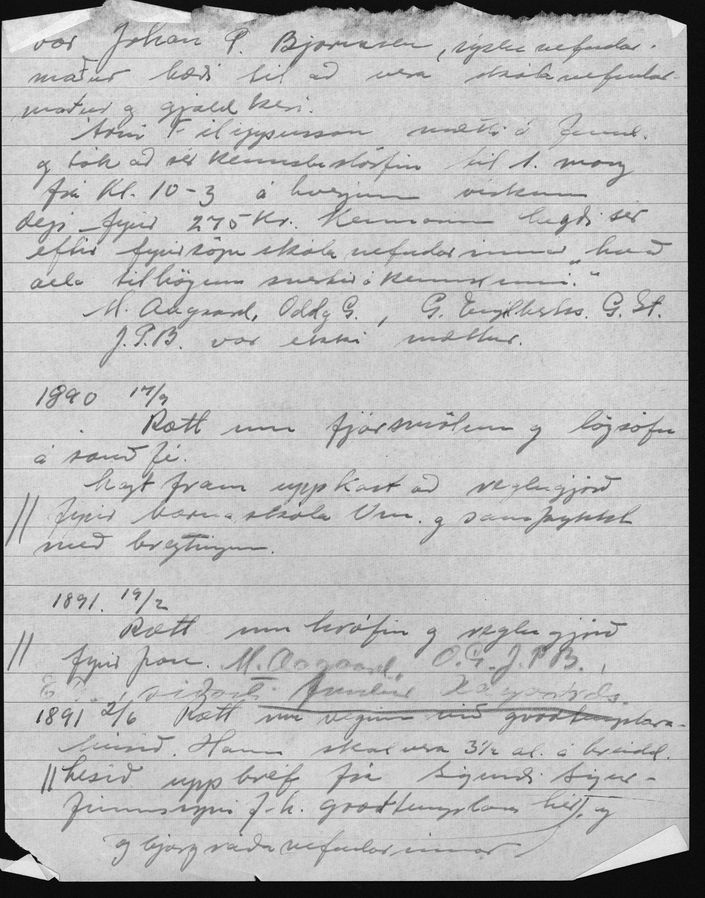 var Johan P. Bjarnasen, sýslunefndar-
maður bæði til að vera skólanefndar-
maður og gjaldkeri.
Árni Filippusson mætti á fund.
og tók að sér kennslustörfin til 1. marz
frá Kl. 10-3 á hverjum virkum
degi fyrir 275 Kr. Kennarinn hegði sér
eftir fyrirsögn skólanefndarinnar „hvað
alla tilhögun snertir á kennslunni."
M. Aagaard, Oddg G., G. Engilberts. G. St.
J.P.B. var ekki mættur.
1890 17/9
Rætt um fjármálum og lögsókn
á sand fé.
Lagt fram uppkast að reglugjörð
// fyrir barnaskóla Vm. og samþykkt
með breytingum.
1891. 19/2
Rætt um hrófin og reglugjörð
// fyrir þau. M. Aagaard, O.G. J.P.B.,
síðast
1891 2/6 Rætt um veginn við goodtemplara-
húsið. Hann skal vera 3½ al. á breidd.
// Lesið upp bréf frá Sigurði Sigur-
finnssyni f. h. goodtemplara hér, og
og bjargráðanefndarinnar